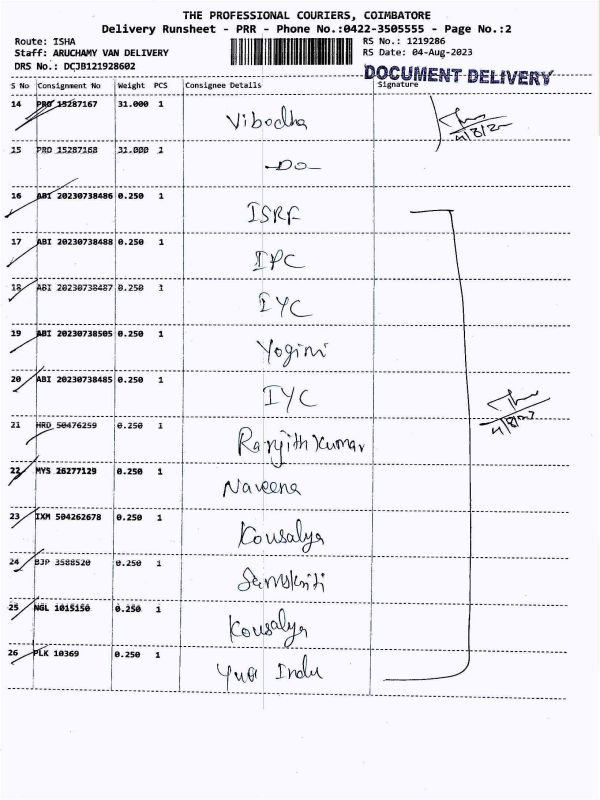 THE PROFESSIONAL COURIERS, COIMBATORE
Delivery Runsheet - PRR - Phone No.:0422-3505555 - Page No.:2
Route: ISHA RS No.: 1219286
Staff: ARUCHAMY VAN DELIVERY RS Date: 04-Aug-2023
DRS No.: DCJB121928602
DOCUMENT DELIVERY
S No Consignment No Weight PCS Consignee Details Signature
14 PRO 15287167 31.000 1 Vibodha
15 PRO 15287168 31.000 1 -Do-
16 ABI 20230738486 0.250 1 ISRF
17 ABI 20230738488 0.250 1 IPC
18 ABI 20230738487 0.250 1 IYC
19 ABI 20230738505 0.250 1 Yogini
20 ABI 20230738485 0.250 1 IYC
21 HRD 50476259 0.250 1 Ranjith Kumar
22 MYS 26277129 0.250 1 Naveena
23 IXM 504262678 0.250 1 Kousalya
24 BJP 3588520 0.250 1 Samskriti
25 NGL 1015150 0.250 1 Kousalya
26 PLK 10369 0.250 1 Yuva Indu